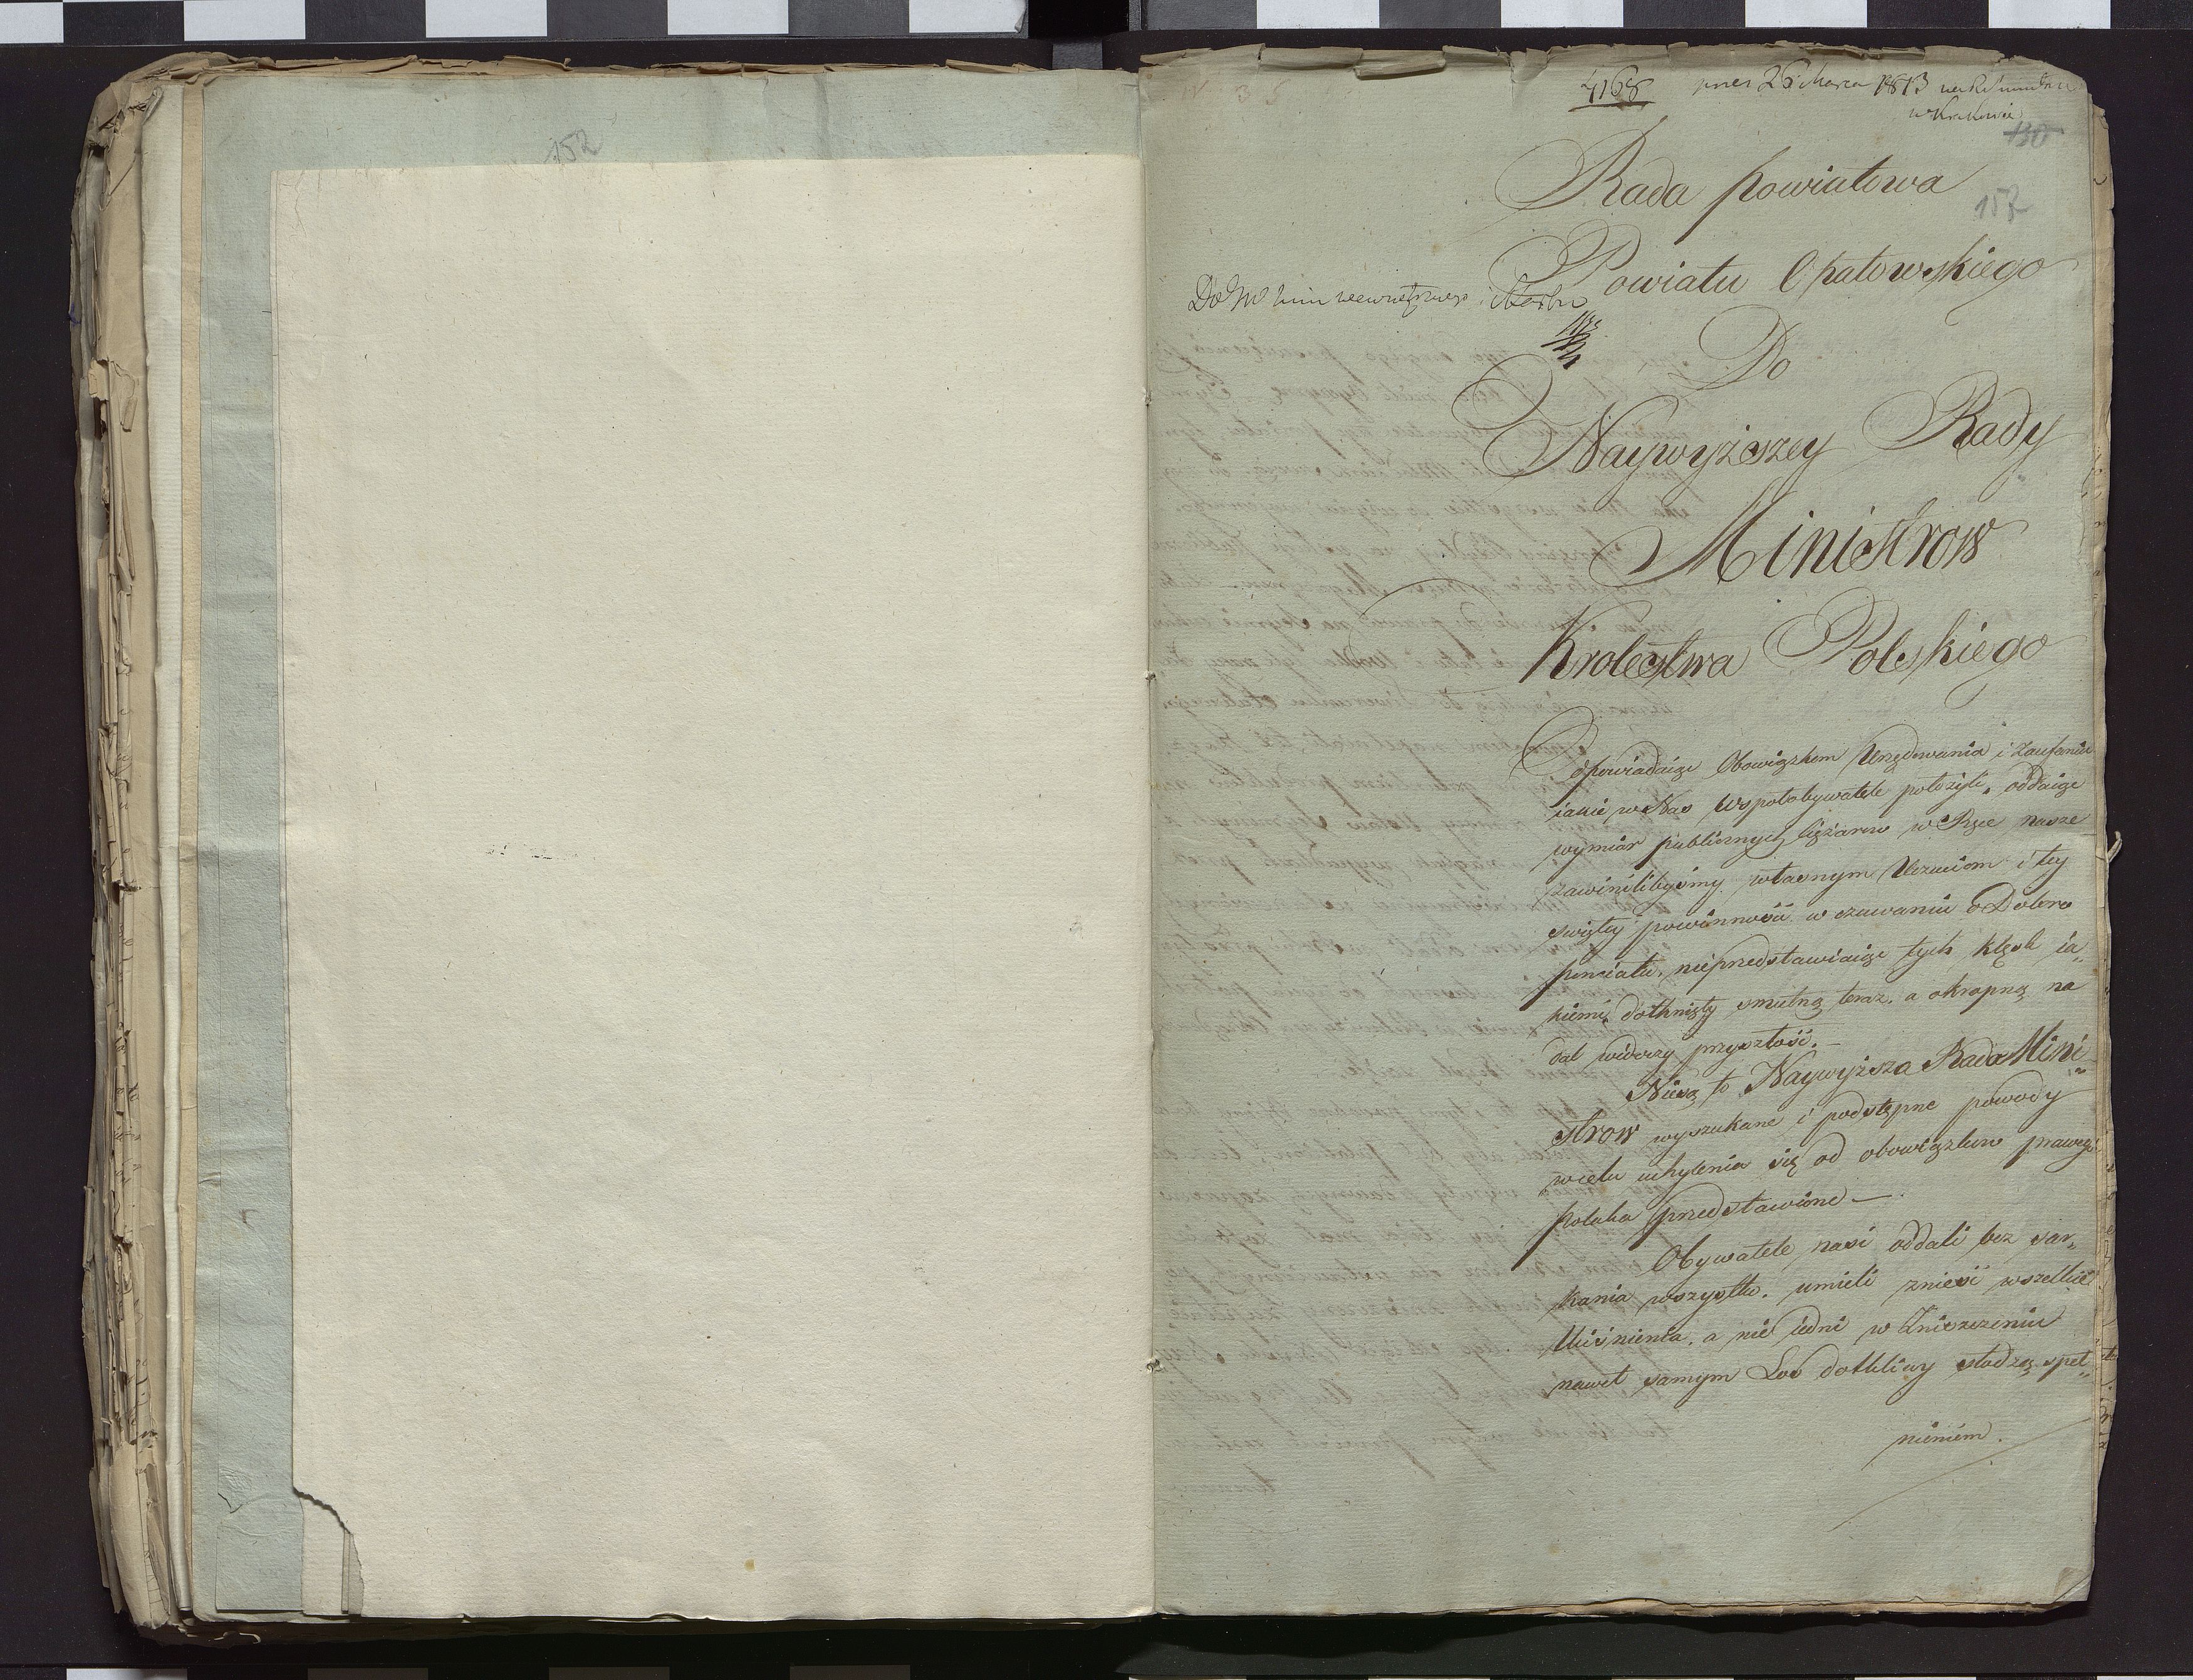 152
4168
26 Marca 1813
w Krakowie
130
157
Rada Powiatowa
Powiatu Opatowskiego
Do
Naywyższey Rady
Ministrow
Krolestwa Polskiego
Odpowiadaiąc Obowiązkom Urzędowania i Zaufaniu
iakie w Nas Wspołobywatele położyli, oddaiąc
wymiar publicznych ciężarow w Ręce nasze
zawinilibyśmy własnym Uczuciom i tey
swiętey powinnosci w czuwaniu o Dobro
powiatu, nieprzedstawiaiąc tych klęsk ia„
kiemi dotknięty smutną teraz, a okropną na
dal widzęcy przyszłość.—
Niesą to Naywyższa Rado Mini„
strow wyszukane i podstępne powody
w celu uchylenia się od obowiązkow prawego
Polaka przedstawione —
Obywatele nasi oddali bez sar„
kania wszystko, umieli znieść wszelkie
Uciśnienia, a nie iedni w Zniszczeniu
nawet samym Los dotkliwy słodzą speł„
nieniem.